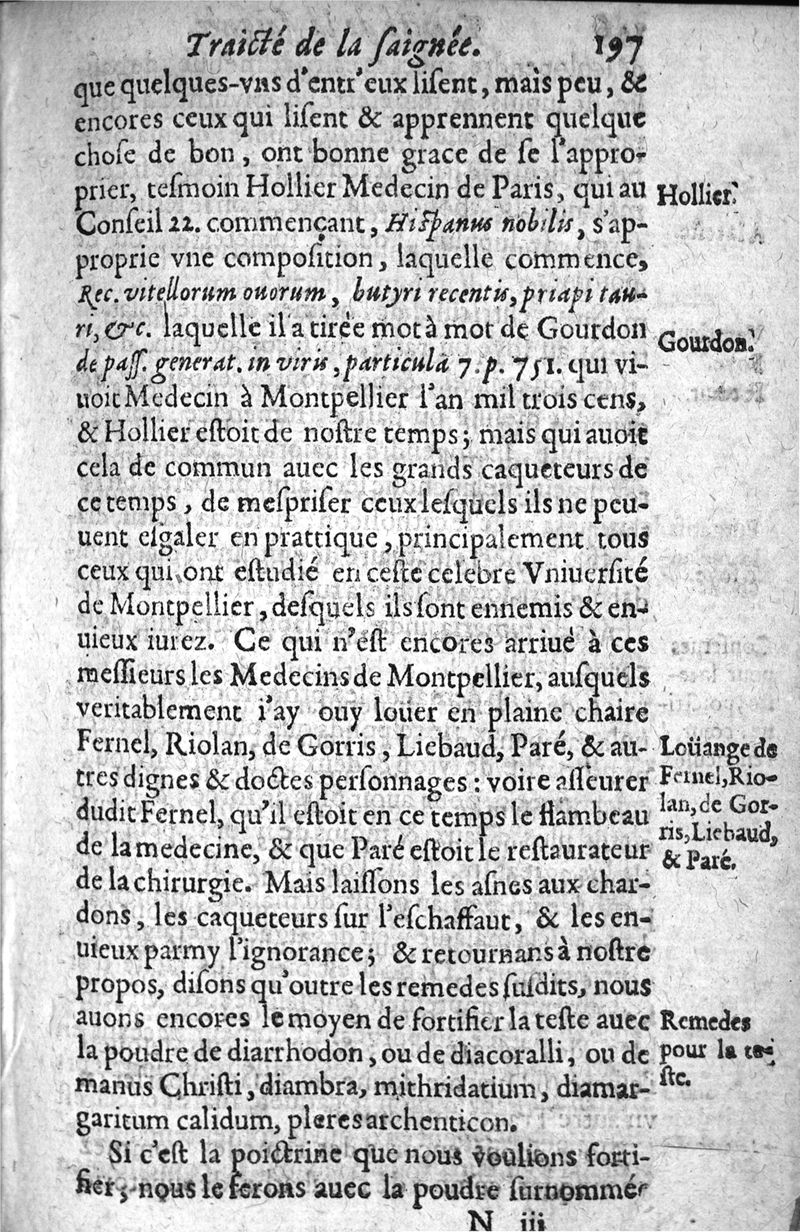 Traicté de la ſaignée. 197
que quelques-vns d'entr'eux liſent, mais peu, &
encores ceux qui liſent & apprennent quelque
choſe de bon, ont bonne grace de ſe l'appro-
prier, teſmoin Hollier Medecin de Paris, qui au
Conſeil 22. commençant, Hiſpanus nobilis, s'ap-
proprie vne compoſition, laquelle commence,
Rec. vitellorum ouorum, butyri recentis, priapi tau-
ri, &c. laquelle il a tirée mot à mot de Gourdon
de paſſ. generat. in viris, particula 7. p. 751. qui vi-
uoit Medecin à Montpellier l'an mil trois cens,
& Hollier eſtoit de noſtre temps; mais qui auoit
cela de commun auec les grands caqueteurs de
ce temps, de meſpriſer ceux leſquels ils ne peu-
uent eſgaler en prattique, principalement tous
ceux qui ont eſtudié en ceſte celebre Vniuerſité
de Montpellier, deſquels ils ſont ennemis & en-
uieux iurez. Ce qui n'eſt encores arriué à ces
meſſieurs les Medecins de Montpellier, auſquels
veritablement i'ay ouy louer en plaine chaire
Fernel, Riolan, de Gorris, Liebaud, Paré, & au-
tres dignes & doctes perſonnages : voire aſſeurer
dudit Fernel, qu'il eſtoit en ce temps le flambeau
de la medecine, & que Paré eſtoit le reſtaurateur
de la chirurgie. Mais laiſſons les aſnes aux char-
dons, les caqueteurs ſur l'eſchaffaut, & les en-
uieux parmy l'ignorance; & retournans à noſtre
propos, diſons qu'outre les remedes ſuſdits, nous
auons encores le moyen de fortifier la teſte auec
la poudre de diarrhodon, ou de diacoralli, ou de
manus Chriſti, diambra, mithridatium, diamar-
garitum calidum, pleres archenticon.
Si c'eſt la poictrine que nous voulions forti-
fier, nous le ferons auec la poudre ſurnommée
N iii
Hollier.
Gourdon.
Loüange de
Fernel, Rio-
lan, de Gor-
ris, Liebaud,
& Paré.
Remedes
pour la te-
ſte.